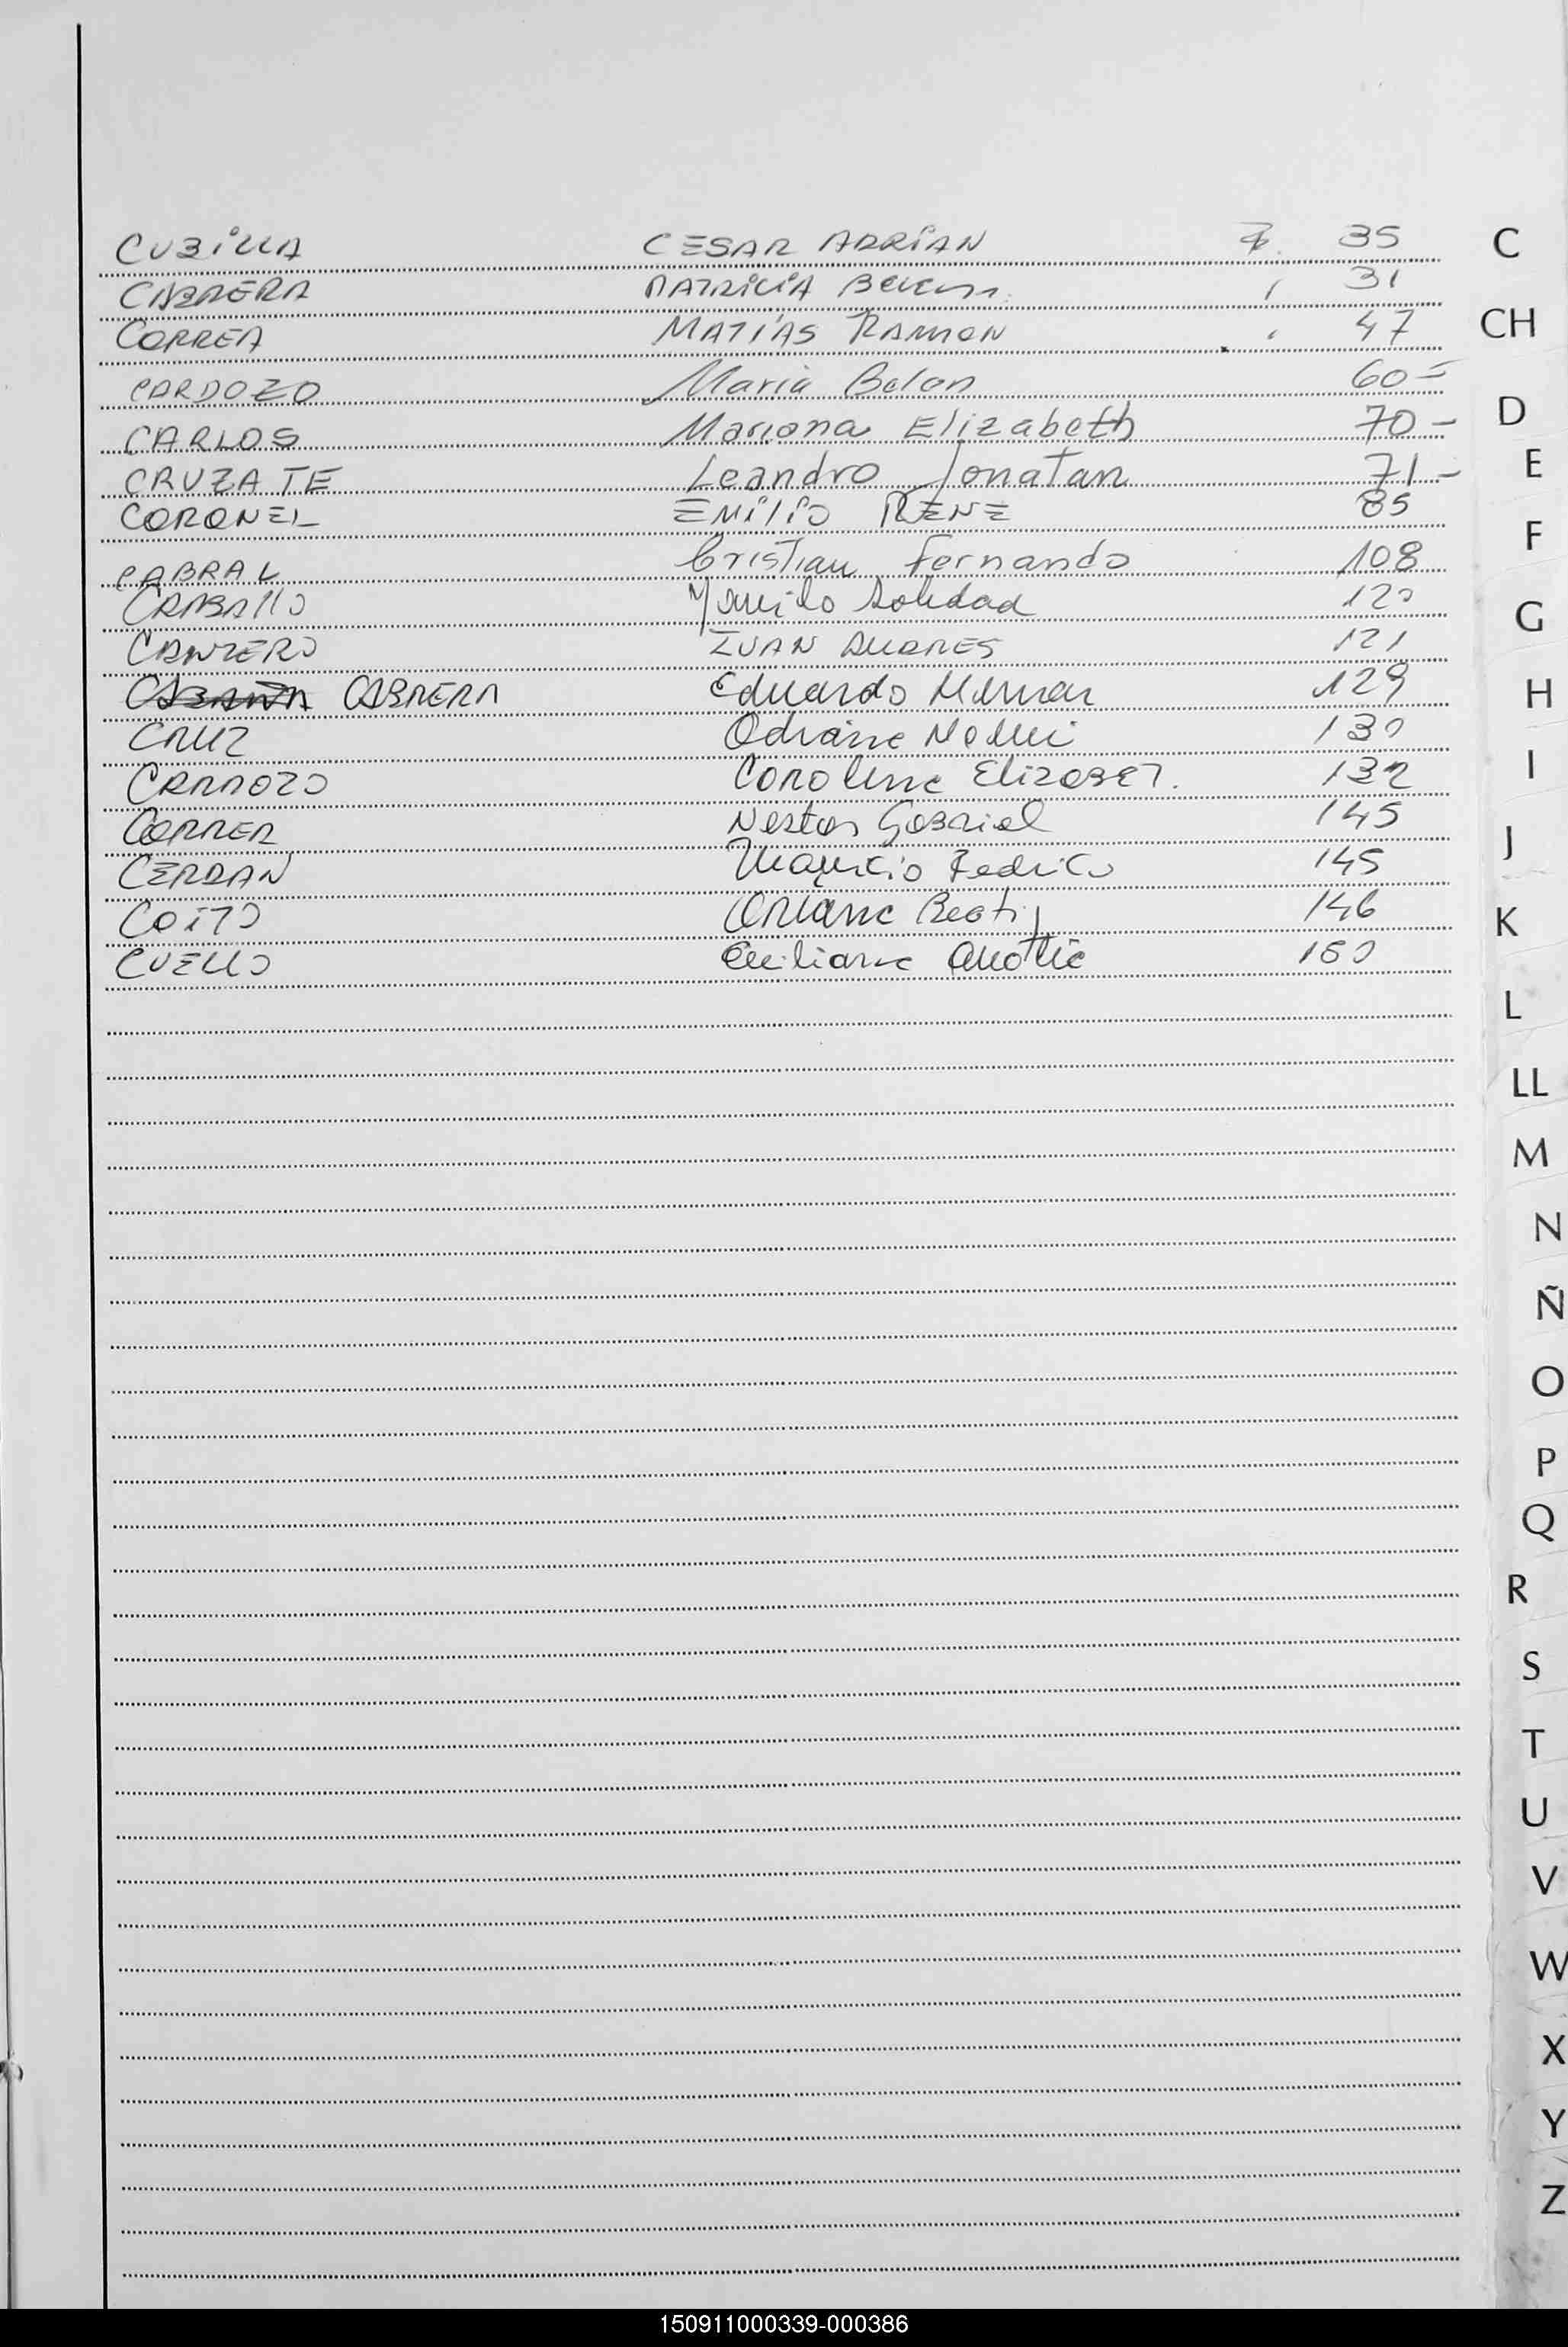 CUBILLA CESAR ADRIAN F. 35
CABRERA PATRICIA Belen 31
CORREA MATÍAS RAMON 47
CARDOZO Maria Belen 60-
CARLOS Mariana Elizabeth 70-
CRUZATE Leandro Jonatan 71-
CORONEL EMILIO RENE 85
CABRAL Cristian Fernando 108
CARBALLO Soledad 120
CANTERO IVAN ANDRES 121
CABRERA Eduardo 129
CRUZ Adriana Noemi 130
CARDOZO Carolina Elizabet. 132
CORREA Nestor Gabriel 145
CERDAN Mauricio Federico 145
COITO Oriana Beatriz 146
CUELLO Emiliana 160
C
CH
D
E
F
G
H
I
J
K
L
LL
M
N
Ñ
O
P
Q
R
S
T
U
V
W
X
Y
Z
150911000339-000386